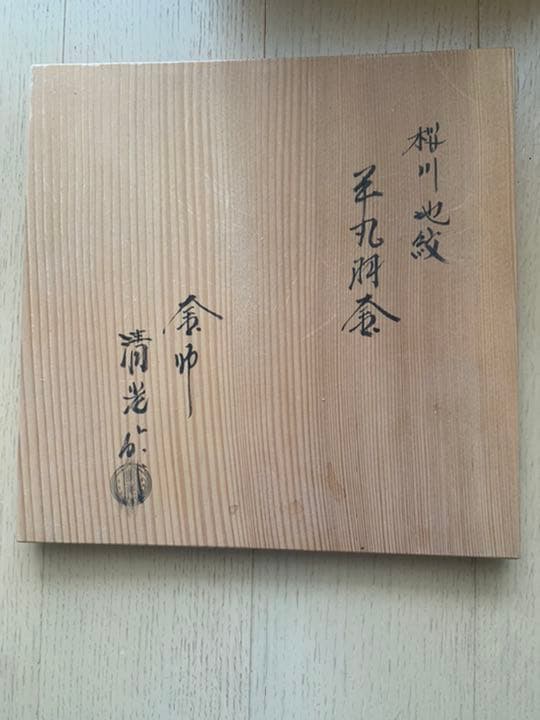 桜川地紋
平丸羽釜
釜師
清光作